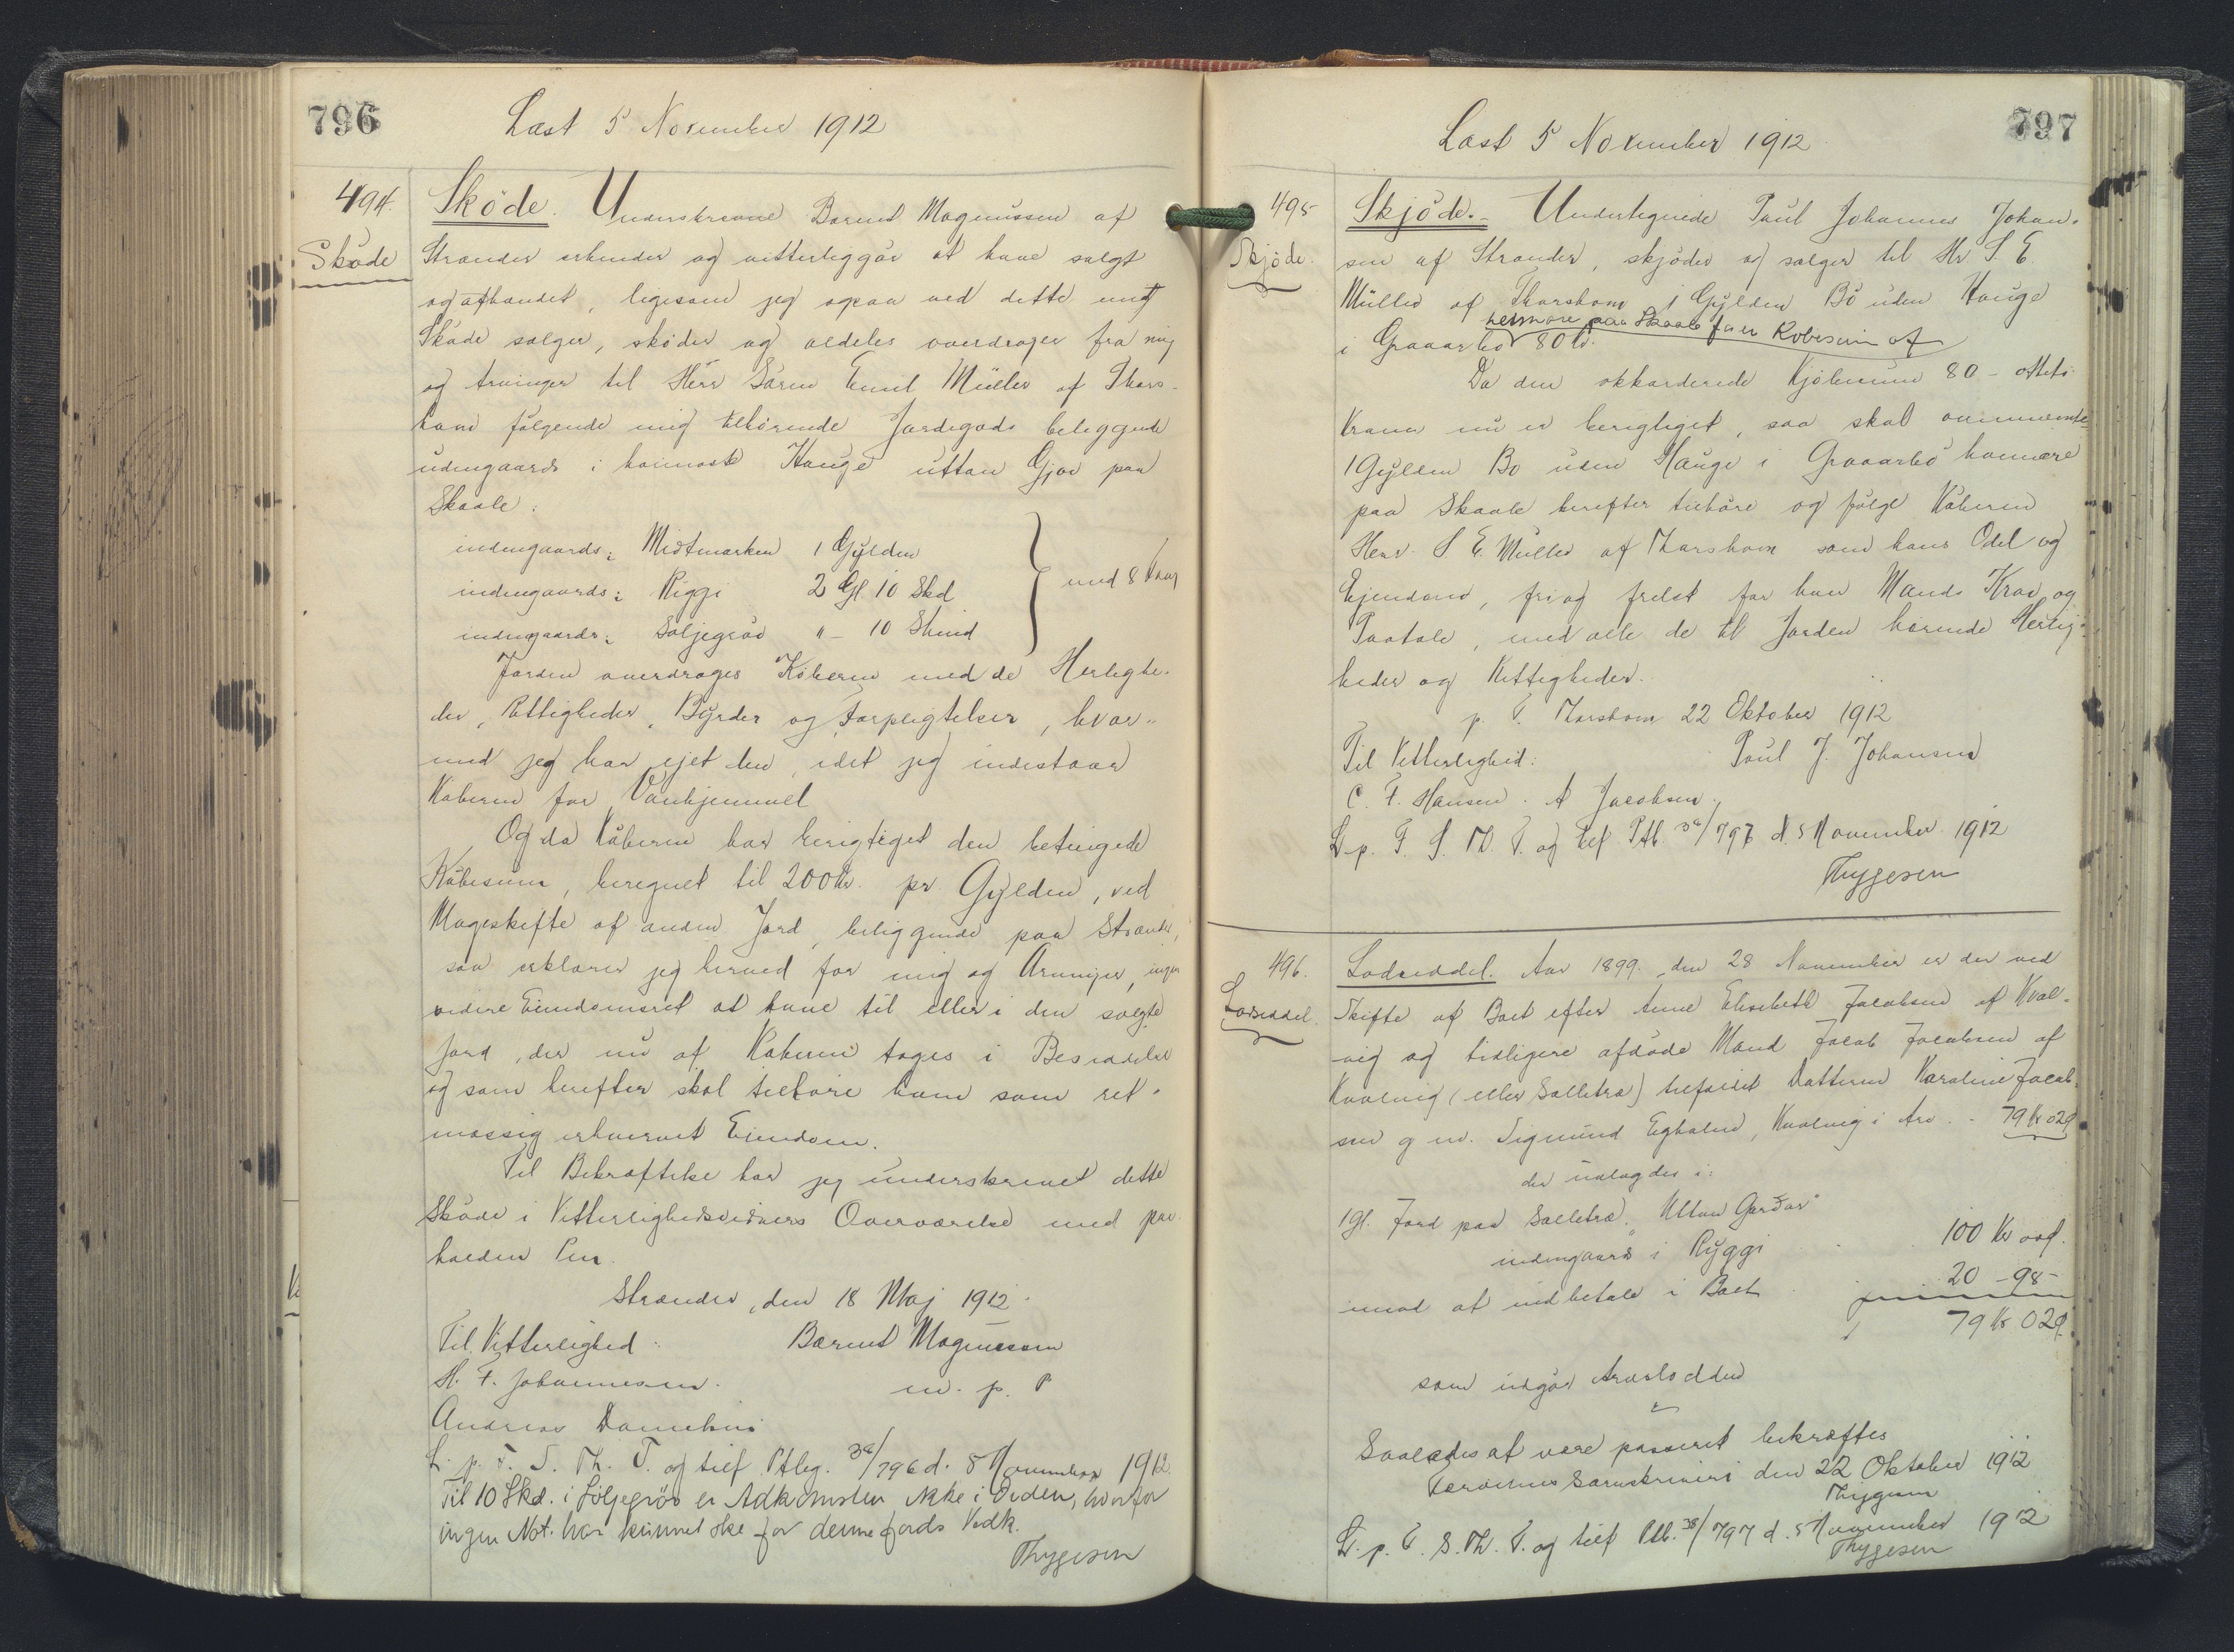 796
Læst 5 November 1912
494.
Sköde
Sköde. Underskrevne Barent Magnussen af
Strænder erkender og vitterliggör at have solgt
og afhændet, ligesom jeg ogsaa ved dette mit
Sköde sælger, sköder og aldeles overdrager fra mig
og Arvinger til Herr Sören Emil Müller af Thors-
havn fölgende mig tilhörende Jordegods beliggende
udengaards i Hauge uttan Gjov paa
Skaale:
indengaards: Midtmarken 1 Gylden
indengaards: Riggi 2 Gl. 10 Skd
indengaards: Söljegröv " - 10 Skind
med 8
Jorden overdrages Köberen med de Herlighe-
der, Rettigheder, Byrder og Forpligtelser, hvor-
med jeg har ejet den, idet jeg indestaar
Köberen for Vanhjemmel
Og da Köberen har berigtiget den betingede
Köbesum, beregnet til 200 Kr. pr. Gylden, ved
Mageskifte af anden Jord, beliggende paa Strænder,
saa erklærer jeg herved for mig og Arvinger, ingen
videre Eiendomsret at have til eller i den solgte
Jord, der nu af Köberen tages i Besiddelse
og som herefter skal tilhöre ham som ret-
mæssig erhvervet Eiendom.
Til Bekræftelse har jeg underskrevet dette
Sköde i Vitterlighedsvidners Overværelse med paa-
holden Pen.
Strænder, den 18 Maj 1912.
Til Vitterlighed: Barent Magnussen
H. F. Johannesen. m. p. P
Andreas Danielsen
L. p. F. S. Th. T. og tilf. Ptbg. 38/796 d. 5 November 1912.
Til 10 Skd. i Söljegröv er Adkomsten ikke i Orden, hvorfor
ingen Not. har kunnet ske for denne Jords Vedk.
Thygesen
797
Læst 5 November 1912
495
Skjöde.
Skjöde. Undertegnede Poul Johannes Johan-
sen af Strænder, skjöder og sælger til Hr S. E.
Müller af Thorshavn 1 Gylden Bö uden Hauge
hejmare paa Skaale for en Köbesum af
i Graaarbö 80 Kr.
Da den akkorderede Kjöbesum 80 - otteti
Kroner nu er berigtiget, saa skal ovennævnte
1 Gylden Bö uden Hauge i Graaarbö
paa Skaale herefter tilhöre og fölge Köberen
Herr. S. E. Müller af Thorshavn som hans Odel og
Ejendom, fri og frelst for hver Mands Krav og
Paatale, med alle de til Jorden hörende Herlig-
heder og Rettigheder.
p. T. Thorshavn 22 Oktober 1912
Til Vitterlighed: Poul J. Johansen
C. F. Hansen. A Jacobsen.
L. p. F. S. Th. T. og tilf. Ptb. 38/797 d. 5 November 1912
Thygesen
496.
Lodseddel.
Lodseddel. Aar 1899. den 28 November er der ved
Skifte af Boet efter Anne Elisabeth Jacobsen af Kval-
vig og tidligere afdöde Mand Jacob Jacobsen af
Kvalvig (eller Salletræ) tilfaldet Datteren Karoline Jacob-
sen g m. Sigmund Egholm, Kvalvig i Arv - 79 Kr 02 Ø
der udlagdes i:
1 Gl. Jord paa Salletræ "Uttan Gardar"
indengaards i Ryggi 100 Kr 00 Ø.
imod at indbetale i Boet 20 - 98 -
79 Kr 02 Ø.
som udgör Arvelodden
Saaledes at være passeret bekræftes
Færöernes Sorenskriveri den 22 Oktober 1912
Thygesen
L. p. F. S. Th. T. og tilf. Ptb. 38/797 d. 5 November 1912
Thygesen